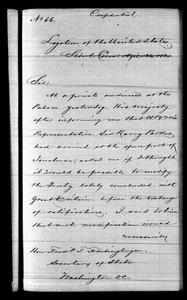 No. 66. Confidential
Legation of the United States
Sir:
At a private audience at the
Palace yesterday, His Majesty
after informing me that H.B.M's
Representative Sir Harry Parkes,
had arrived at the open port of
Jenchuan, asked me if I thought
it would be possible to modify
the Treaty lately concluded with
Great Britain, before the exchange
of ratifications. I said to him
that such modification would
necessarily
Hon: Fredk T. Frelinghuysen
Secretary of State
Washington D.C.